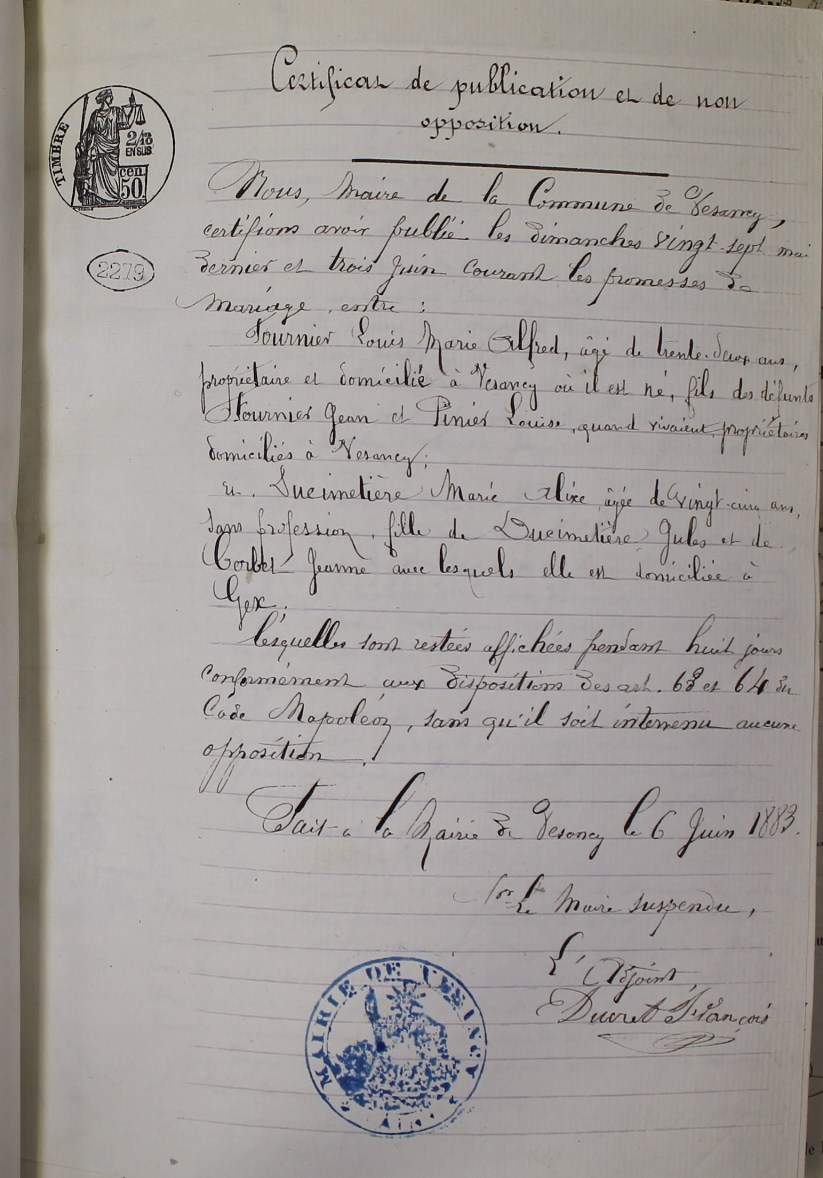 Certificat de publication et de non
opposition.
TIMBRE
2/10
EN SUS
cen
50.
2279
Nous, Maire de la Commune de Vesancy,
certifions avoir publié les dimanches vingt-sept mai
dernier et trois Juin courant les promesses de
mariage entre :
Fournier Louis Marie Alfred, âgé de trente-deux ans,
propriétaire et domicilié à Vesancy où il est né, fils des défunts
Fournier Jean et Pinier Louise, quand vivaient propriétaires
domiciliés à Vesancy;
et Ducimetière Marie Alixe âgée de vingt-cinq ans,
sans profession, fille de Ducimetière Jules et de
Corbet Jeanne avec lesquels elle est domiciliée à
Gex.
lesquelles sont restées affichées pendant huit jours
conformément aux dispositions des art. 63 et 64 du
Code Napoléon, sans qu'il soit intervenu aucune
opposition.
Fait à la Mairie de Vesancy le 6 Juin 1883.
Pour Le Maire suspendu,
L'Adjoint,
Ducret François
MAIRIE DE VESANCY
AIN